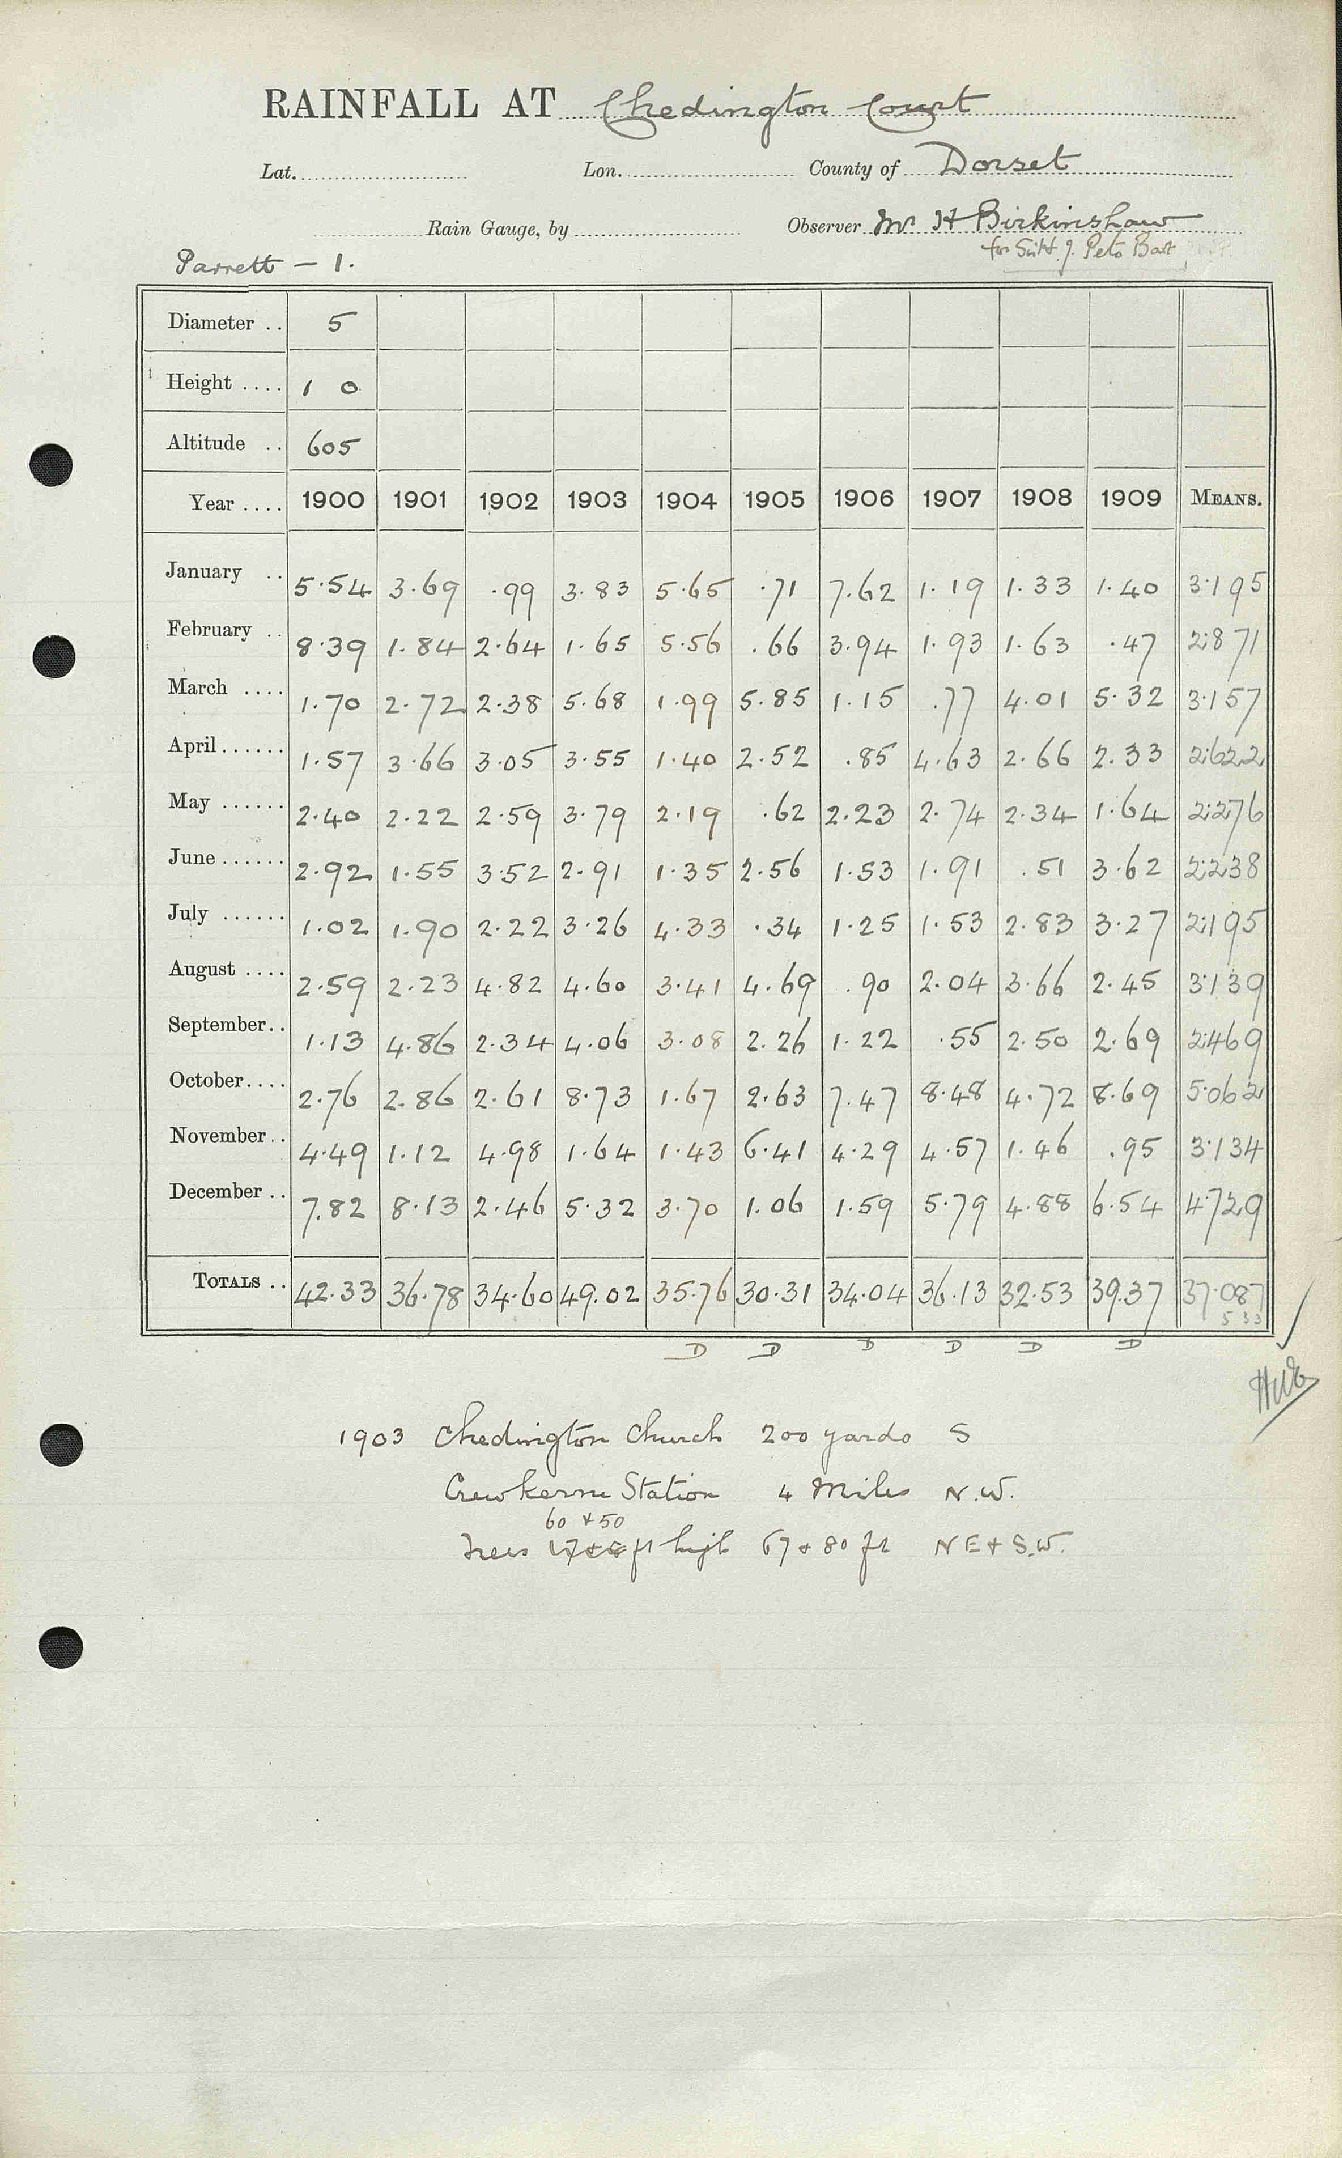 RAINFALL AT Chedington Court
Lat. Lon. County of Dorset
Rain Gauge, by Observer Mr H Birkinshaw
for Sir H. J. Peto Bart
Parrett – 1.
Diameter .. 5
Height .... 1 0
Altitude .. 605
Year .... 1900 1901 1902 1903 1904 1905 1906 1907 1908 1909 MEANS.
January .. 5.54 3.69 .99 3.83 5.65 .71 7.62 1.19 1.33 1.40 3.195
February .. 8.39 1.84 2.64 1.65 5.56 .66 3.94 1.93 1.63 .47 2.871
March .... 1.70 2.72 2.38 5.68 1.99 5.85 1.15 .77 4.01 5.32 3.157
April ...... 1.57 3.66 3.05 3.55 1.40 2.52 .85 4.63 2.66 2.33 2.622
May ...... 2.40 2.22 2.59 3.79 2.19 .62 2.23 2.74 2.34 1.64 2.276
June ...... 2.92 1.55 3.52 2.91 1.35 2.56 1.53 1.91 .51 3.62 2.238
July ...... 1.02 1.90 2.22 3.26 4.33 .34 1.25 1.53 2.83 3.27 2.195
August .... 2.59 2.23 4.82 4.60 3.41 4.69 .90 2.04 3.66 2.45 3.139
September .. 1.13 4.86 2.34 4.06 3.08 2.26 1.22 .55 2.50 2.69 2.469
October .... 2.76 2.86 2.61 8.73 1.67 2.63 7.47 8.48 4.72 8.69 5.062
November .. 4.49 1.12 4.98 1.64 1.43 6.41 4.29 4.57 1.46 .95 3.134
December .. 7.82 8.13 2.46 5.32 3.70 1.06 1.59 5.79 4.88 6.54 4.729
TOTALS .. 42.33 36.78 34.60 49.02 35.76 30.31 34.04 36.13 32.53 39.37 37.087
533
D D D D D D
1903 Chedington Church 200 yards S
Crewkerne Station 4 Miles N.W.
60 + 50
Trees ft high 67 + 80 ft N E + S.W.